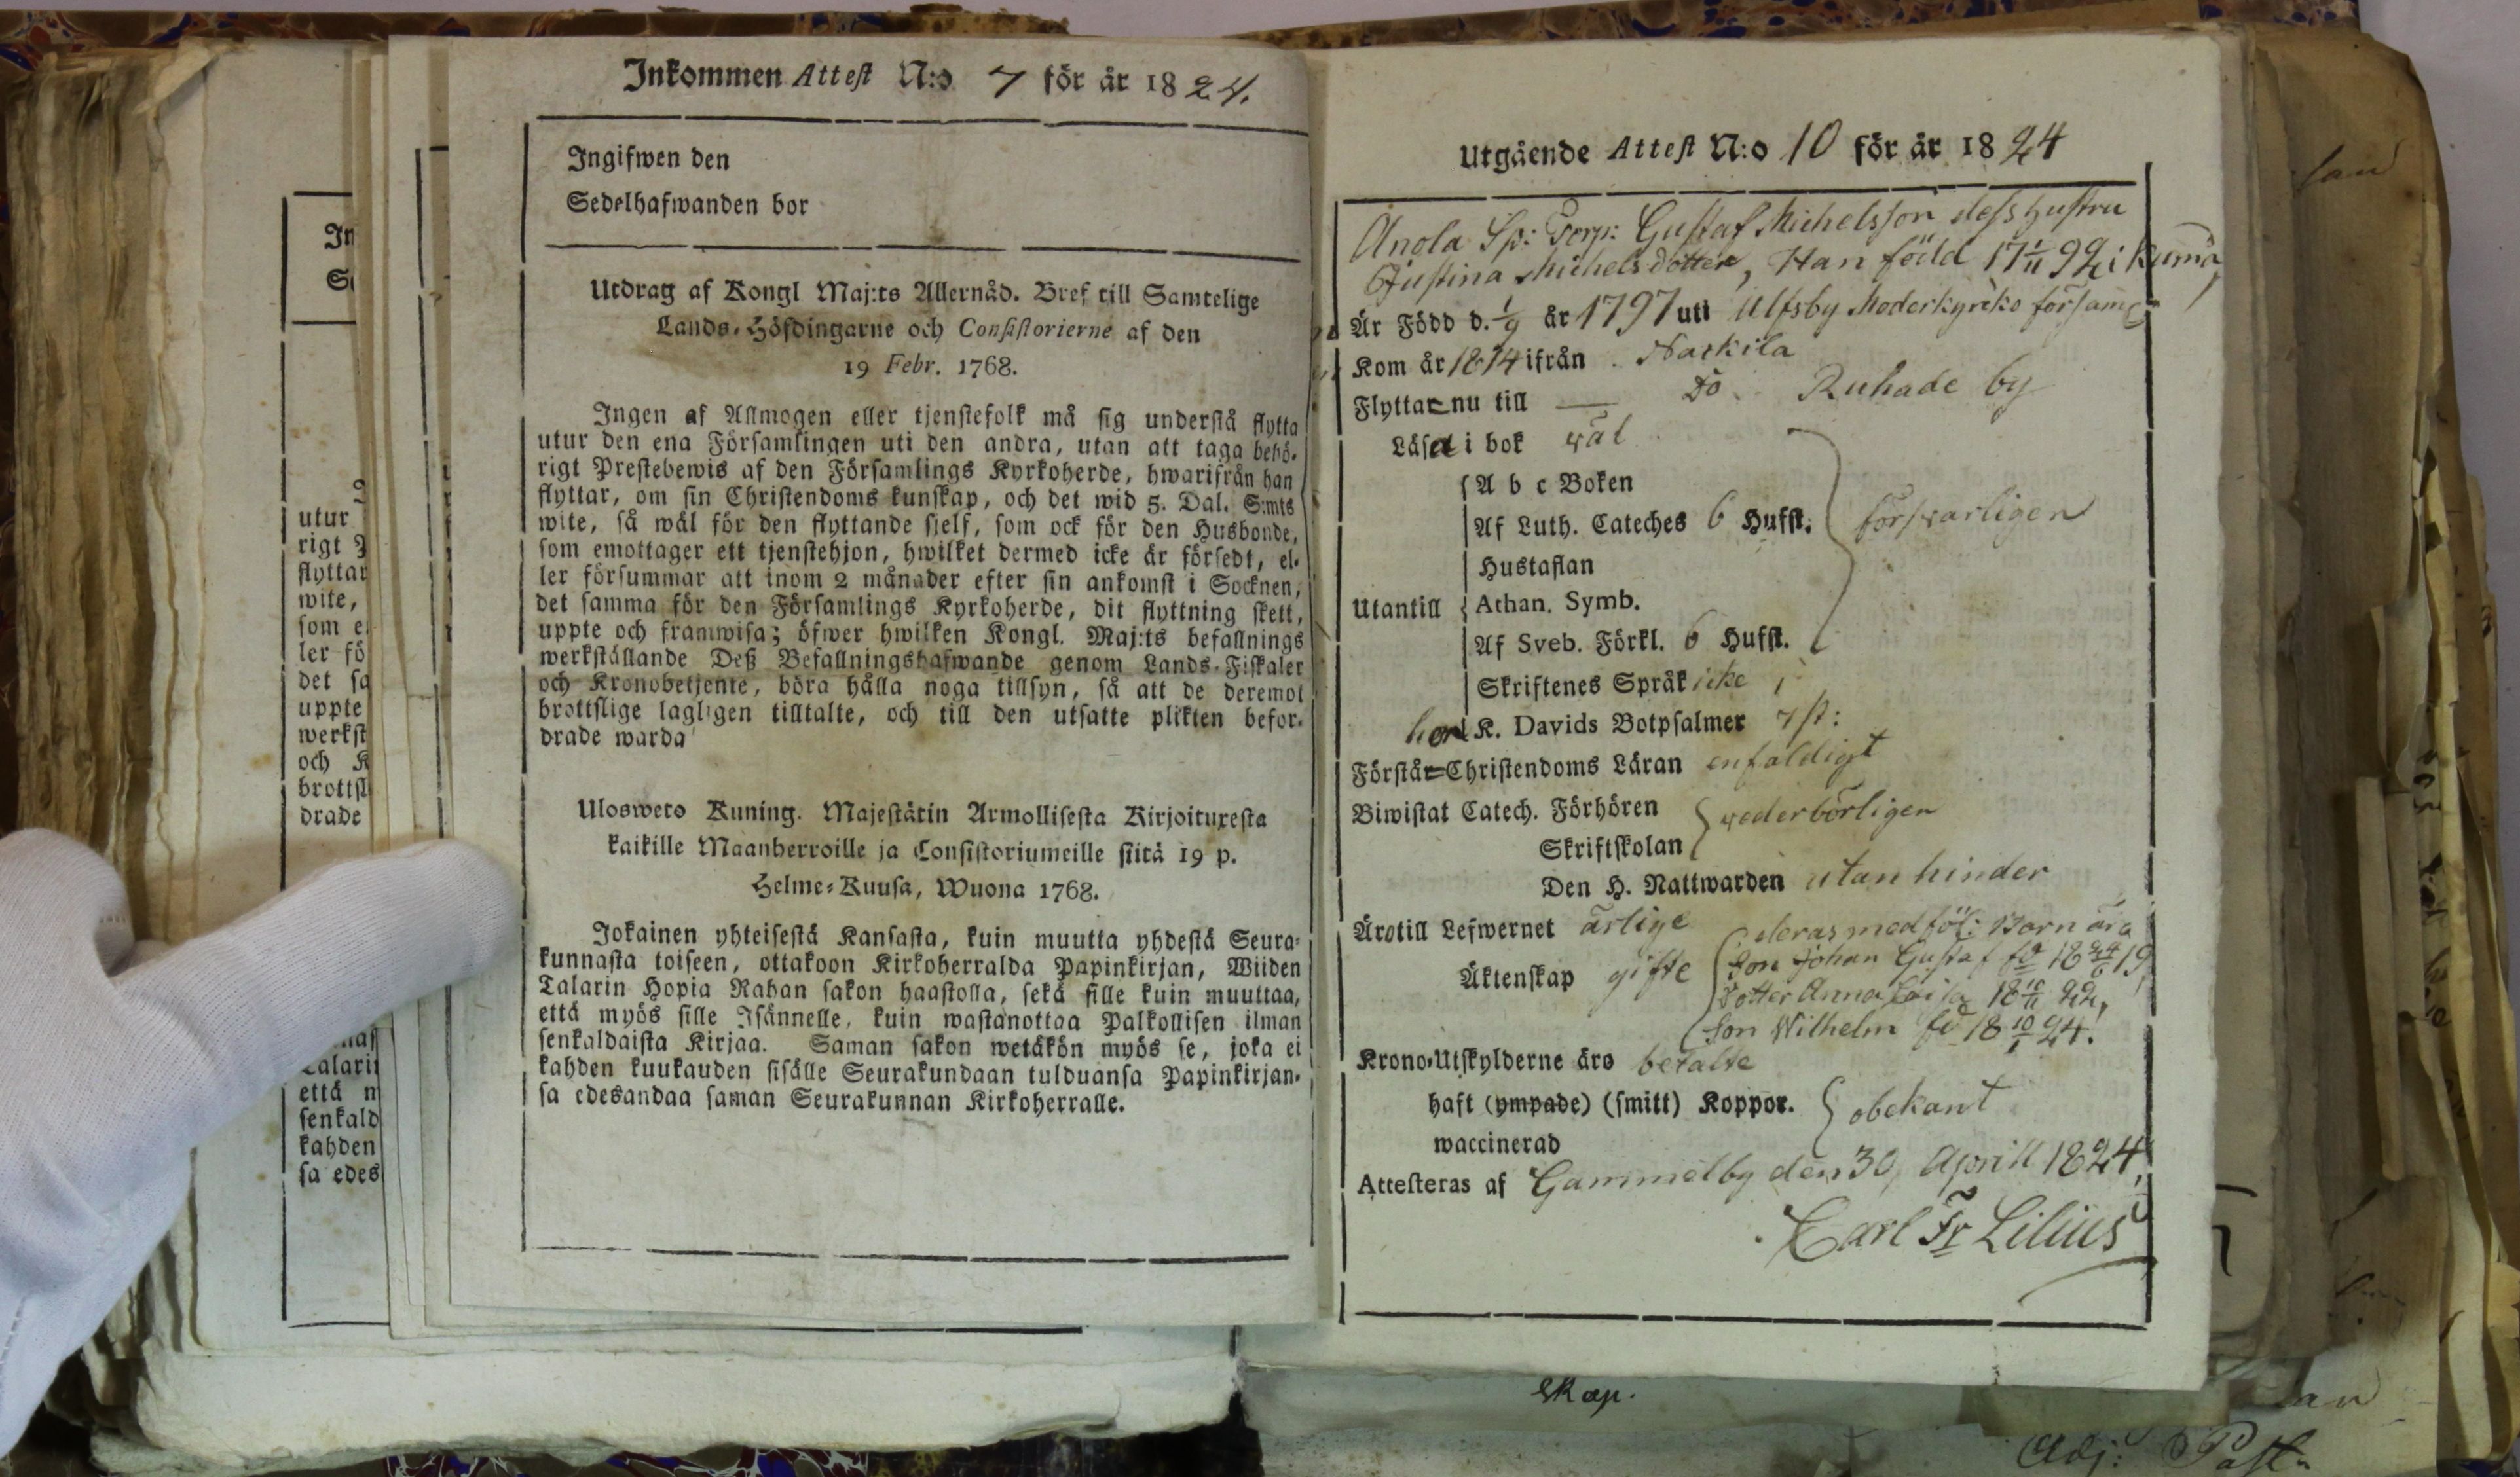 Inkommen Attest N:o 7 för år 1824.
Ingifwen den
Sedelhafwanden bor
Utdrag af Kongl Maj:ts Allernåd. Bref till Samtelige
Lands-Höfdingarne och Consistorierne af den
19 Febr. 1768.
Ingen af Allmogen eller tjenstefolk må sig understå flytta
utur den ena Församlingen uti den andra, utan att taga behö-
rigt Prestebewis af den Församlings Kyrkoherde, hwarifrån han
flyttar, om sin Christendoms kunskap, och det wid 5. Dal. S:mts
wite, så wäl för den flyttande sjelf, som ock för den Husbonde,
som emottager ett tjenstehjon, hwilket dermed icke är försedt, el-
ler försummar att inom 2 månader efter sin ankomst i Socknen,
det samma för den Församlings Kyrkoherde, dit flyttning skett,
uppte och framwisa; öfwer hwilken Kongl. Maj:ts befallnings
werkställande Deß Befallningshafwande genom Lands-Fiskaler
och Kronobetjente, böra hålla noga tillsyn, så att de deremot
brottslige lagligen tilltalte, och till den utsatte plikten befor-
drade warda
Ulosweto Kuning. Majestätin Armollisesta Kirjoituxesta
kaikille Maanherroille ja Consistoriumeille siitä 19 p.
Helme-Kuusa, Wuona 1768.
Jokainen yhteisestä Kansasta, kuin muutta yhdestä Seura-
kunnasta toiseen, ottakoon Kirkoherralda Papinkirjan, Wiiden
Talarin Hopia Rahan sakon haastolla, sekä sille kuin muuttaa,
että myös sille Isännelle, kuin wastanottaa Palkollisen ilman
senkaldaista Kirjaa. Saman sakon wetäkön myös se, joka ei
kahden kuukauden sisälle Seurakundaan tulduansa Papinkirjan-
sa edesandaa saman Seurakunnan Kirkoherralle.
Utgående Attest N:o 10 för år 1824
Anola Sp: Torp: Gustaf Michelsson dess hustru
Justina Michelsdotter, Han född 17 1/11 92 i Kumå,
Är Född d. 1/9 år 1797 uti Ulfsby Moderkyrko församl
Kom år 1814 ifrån Nackila
Flyttar nu till — Do Ruhade by
Läsa i bok wäl
A b c Boken
Af Luth. Cateches 6 Hufst. försvarligen
Hustaflan
Utantill Athan. Symb.
Af Sveb. Förkl. 6 Hufst.
Skriftenes Språk icke
hon K. Davids Botpsalmer 7 st:
Förstår Christendoms Läran enfaldigt
Biwistat Catech. Förhören wederbörligen
Skriftskolan
Den H. Nattwarden utan hinder
Äro till Lefwernet ärlige deras medföl: Barn äro
Äktenskap gifte Son Johan Gustaf fö 18 24/6 19,
Dotter Anna Loisa 18 10/11 22,
Son Wilhelm fö 18 10/1 24.
Krono-Utskylderne äro betalte
haft (ympade) (smitt) Koppor. obekant
waccinerad
Attesteras af Gammelby den 30 Aprill 1824,
Carl Fr Lilius
skap.
Adj: Past:
utur
rigt
flyttar
wite,
som e
ler fö
det sa
uppte
werkst
och K
brottsl
drade
Talarin
että m
senkald
kahden
sa edes